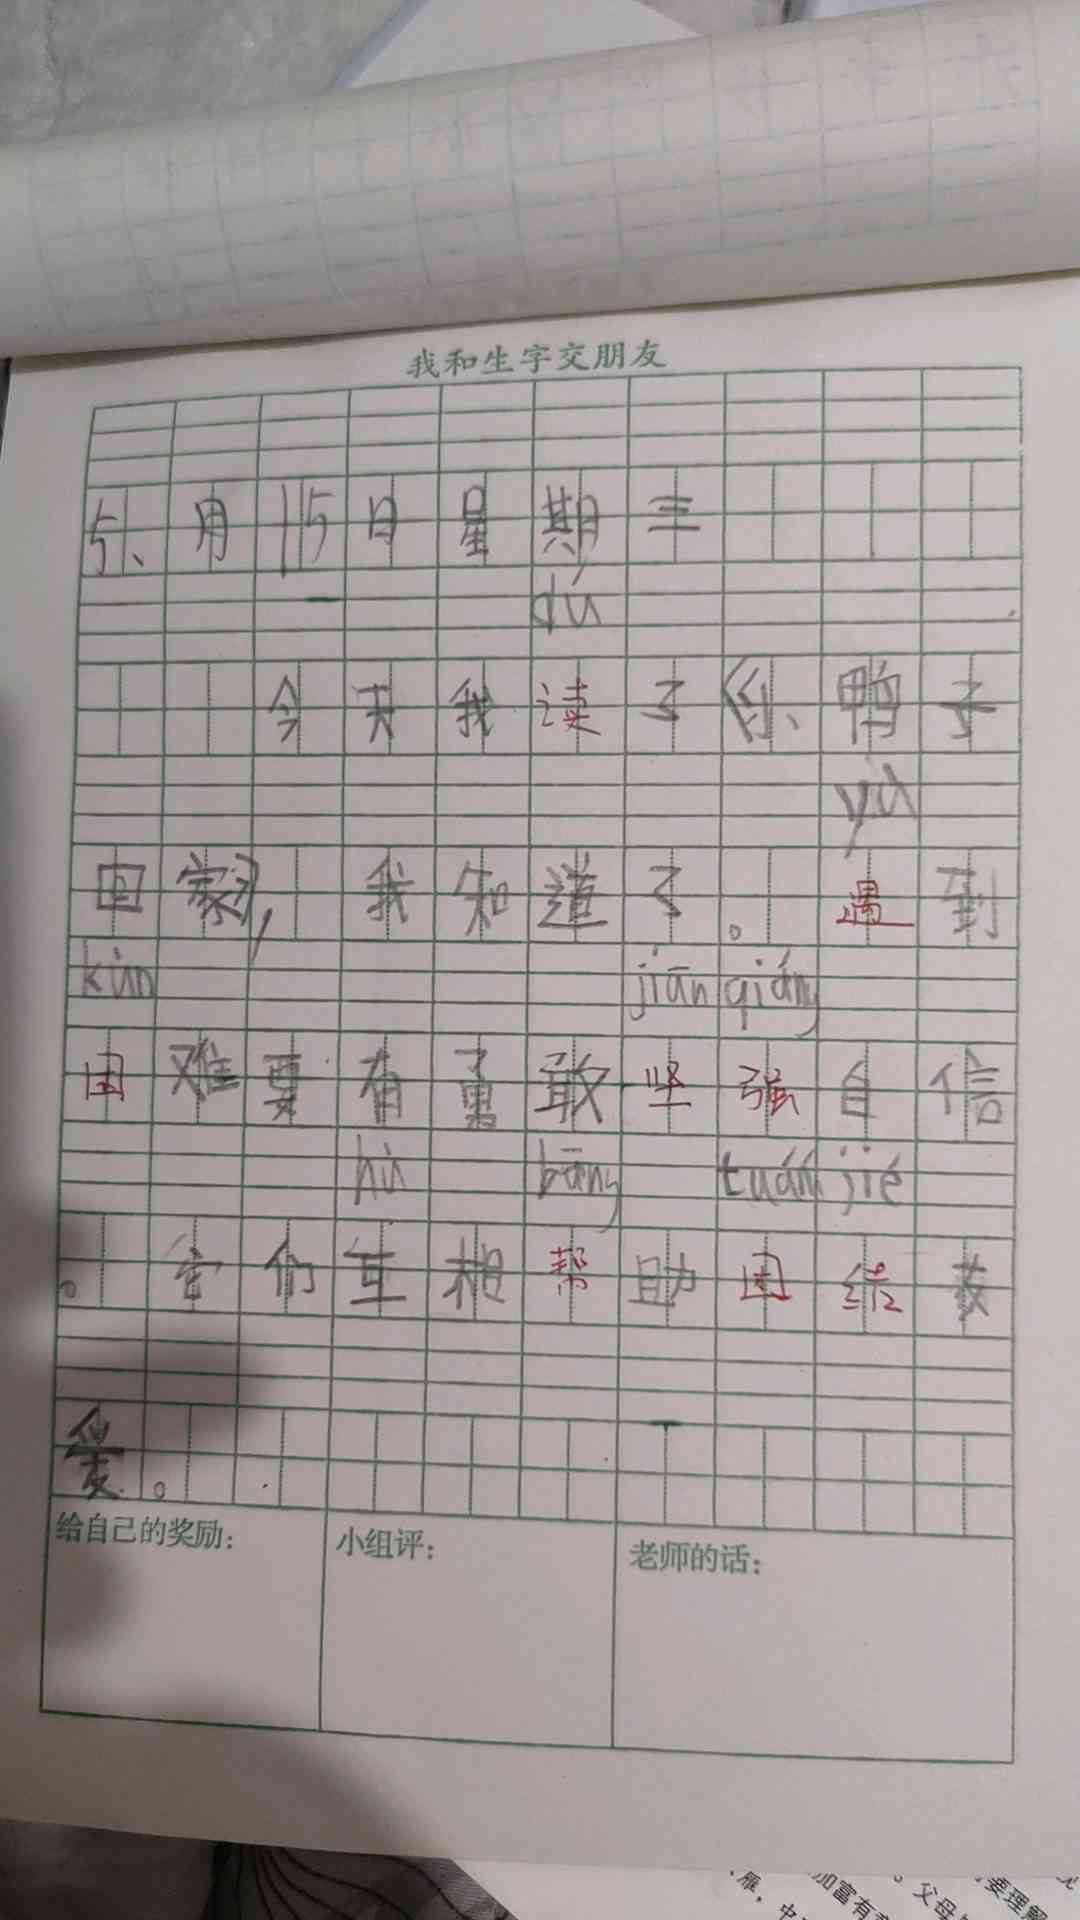 我和生字交朋友
5、月15日星期三
dú
今天我读了《小、鸭子
yù
回家》，我知道了。遇到
kùn jiān qiáng
困难要有勇敢坚强自信
hù bāng tuán jié
。它们互相帮助团结友
爱。
给自己的奖励：
小组评：
老师的话：
加富有
父母
要理解
雁，中